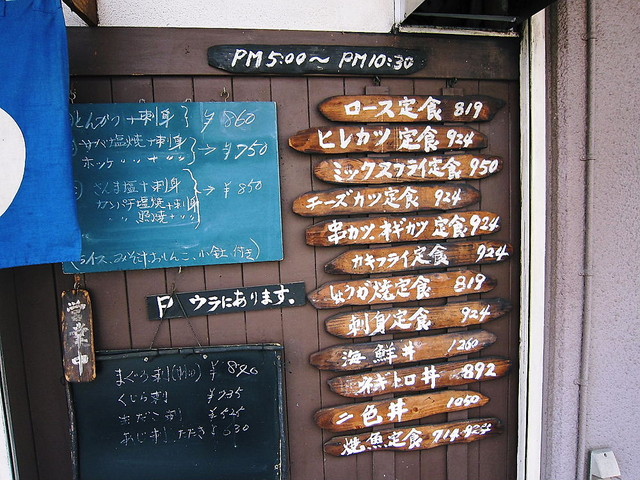 PM 5:00〜 PM10:30
とんかつ+刺身 } ¥860
サバ塩焼+刺身
ホッケ 〃 + 〃 } → ¥750
さんま塩+刺身
カンパチ塩焼+刺身
〃 照焼+〃 } → ¥850
付き)
営業中
P ウラにあります。
まぐろ刺 ¥820
くじら刺 ¥735
あじ刺 たたき
ロース定食 819
ヒレカツ定食 924
ミックスフライ定食 950
チーズカツ定食 924
串カツ.ネギカツ定食 924
カキフライ定食 924
しょうが焼定食 819
刺身定食 924
海鮮丼 1260
ネギトロ丼 892
二色丼 1050
焼魚定食 714.924